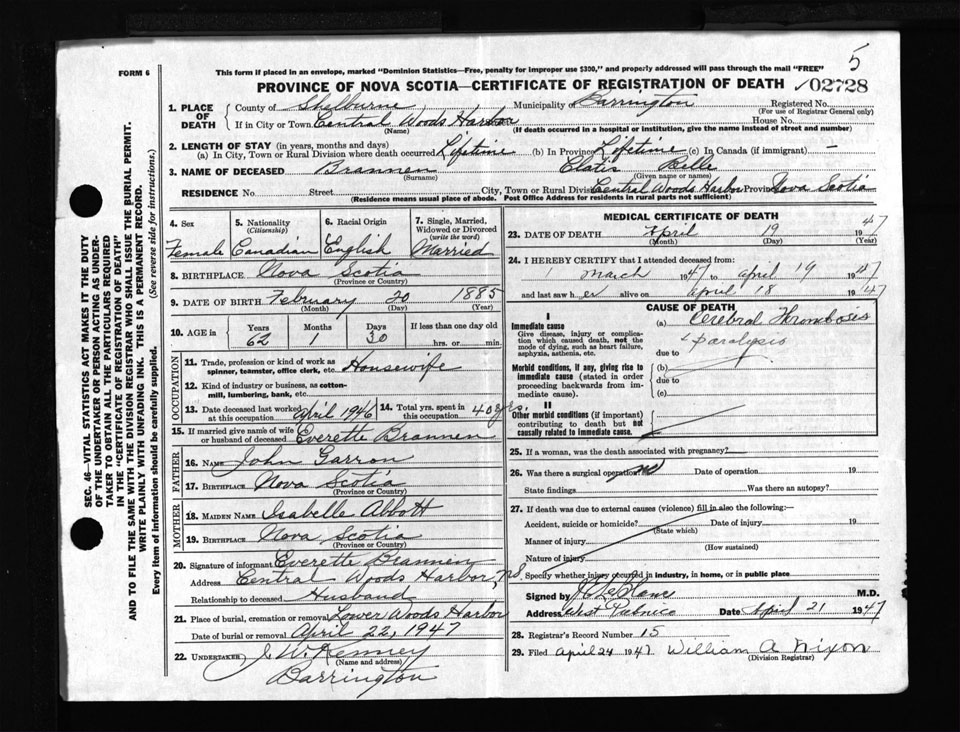 5
FORM 6
This form if placed in an envelope, marked "Dominion Statistics—Free, penalty for improper use $300," and properly addressed will pass through the mail "FREE"
PROVINCE OF NOVA SCOTIA—CERTIFICATE OF REGISTRATION OF DEATH 02728
1. PLACE OF DEATH County of Shelburne Municipality of Barrington Registered No.
(For use of Registrar General only)
If in City or Town Central Woods Harbor House No.
(Name) (If death occurred in a hospital or institution, give the name instead of street and number)
2. LENGTH OF STAY (in years, months and days)
(a) In City, Town or Rural Division where death occurred Lifetime (b) In Province Lifetime (c) In Canada (if immigrant) —
3. NAME OF DECEASED Brannen Belle
(Surname) (Given name or names)
RESIDENCE No. Street City, Town or Rural Division Central Woods Harbor Province Nova Scotia
(Residence means usual place of abode. Post Office Address for residents in rural parts not sufficient)
4. Sex Female
5. Nationality (Citizenship) Canadian
6. Racial Origin English
7. Single, Married, Widowed or Divorced (write the word) Married
8. BIRTHPLACE Nova Scotia
(Province or Country)
9. DATE OF BIRTH February 20 1885
(Month) (Day) (Year)
10. AGE in Years Months Days If less than one day old
62 1 30 hrs. or min.
OCCUPATION
11. Trade, profession or kind of work as spinner, teamster, office clerk, etc. Housewife
12. Kind of industry or business, as cotton-mill, lumbering, bank, etc.
13. Date deceased last worked at this occupation April 1946
14. Total yrs. spent in this occupation 40 yrs.
15. If married give name of wife or husband of deceased Everette Brannen
FATHER
16. NAME John Garron
17. BIRTHPLACE Nova Scotia
(Province or Country)
MOTHER
18. MAIDEN NAME Isabelle Abbott
19. BIRTHPLACE Nova Scotia
(Province or Country)
20. Signature of informant Everette Brannen
Address Central Woods Harbor, NS.
Relationship to deceased Husband
21. Place of burial, cremation or removal Lower Woods Harbor
Date of burial or removal April 22, 1947
22. UNDERTAKER J. W. Kenney
(Name and address)
Barrington
MEDICAL CERTIFICATE OF DEATH
23. DATE OF DEATH April 19 1947
(Month) (Day) (Year)
24. I HEREBY CERTIFY that I attended deceased from:
1 March 1947 to April 19 1947
and last saw her alive on April 18 1947
CAUSE OF DEATH
I
Immediate cause
Give disease, injury or complication which caused death, not the mode of dying, such as heart failure, asphyxia, asthenia, etc.
(a) Cerebral Thrombosis
+ paralysis
due to
Morbid conditions, if any, giving rise to immediate cause (stated in order proceeding backwards from immediate cause).
(b)
due to
(c)
II
Other morbid conditions (if important) contributing to death but not causally related to immediate cause.
25. If a woman, was the death associated with pregnancy?
26. Was there a surgical operation? no Date of operation 19
State findings Was there an autopsy?
27. If death was due to external causes (violence) fill in also the following:—
Accident, suicide or homicide? Date of injury 19
(State which)
Manner of injury
(How sustained)
Nature of injury
Specify whether injury occurred in industry, in home, or in public place
Signed by LeBlanc M.D.
Address West Pubnico Date April 21 1947
28. Registrar's Record Number 15
29. Filed April 24 1947 William A Nixon
(Division Registrar)
SEC. 46—VITAL STATISTICS ACT MAKES IT THE DUTY
OF THE UNDERTAKER OR PERSON ACTING AS UNDER-
TAKER TO OBTAIN ALL THE PARTICULARS REQUIRED
IN THE "CERTIFICATE OF REGISTRATION OF DEATH"
AND TO FILE THE SAME WITH THE DIVISION REGISTRAR WHO SHALL ISSUE THE BURIAL PERMIT.
WRITE PLAINLY WITH UNFADING INK. THIS IS A PERMANENT RECORD.
Every item of Information should be carefully supplied. (See reverse side for instructions.)